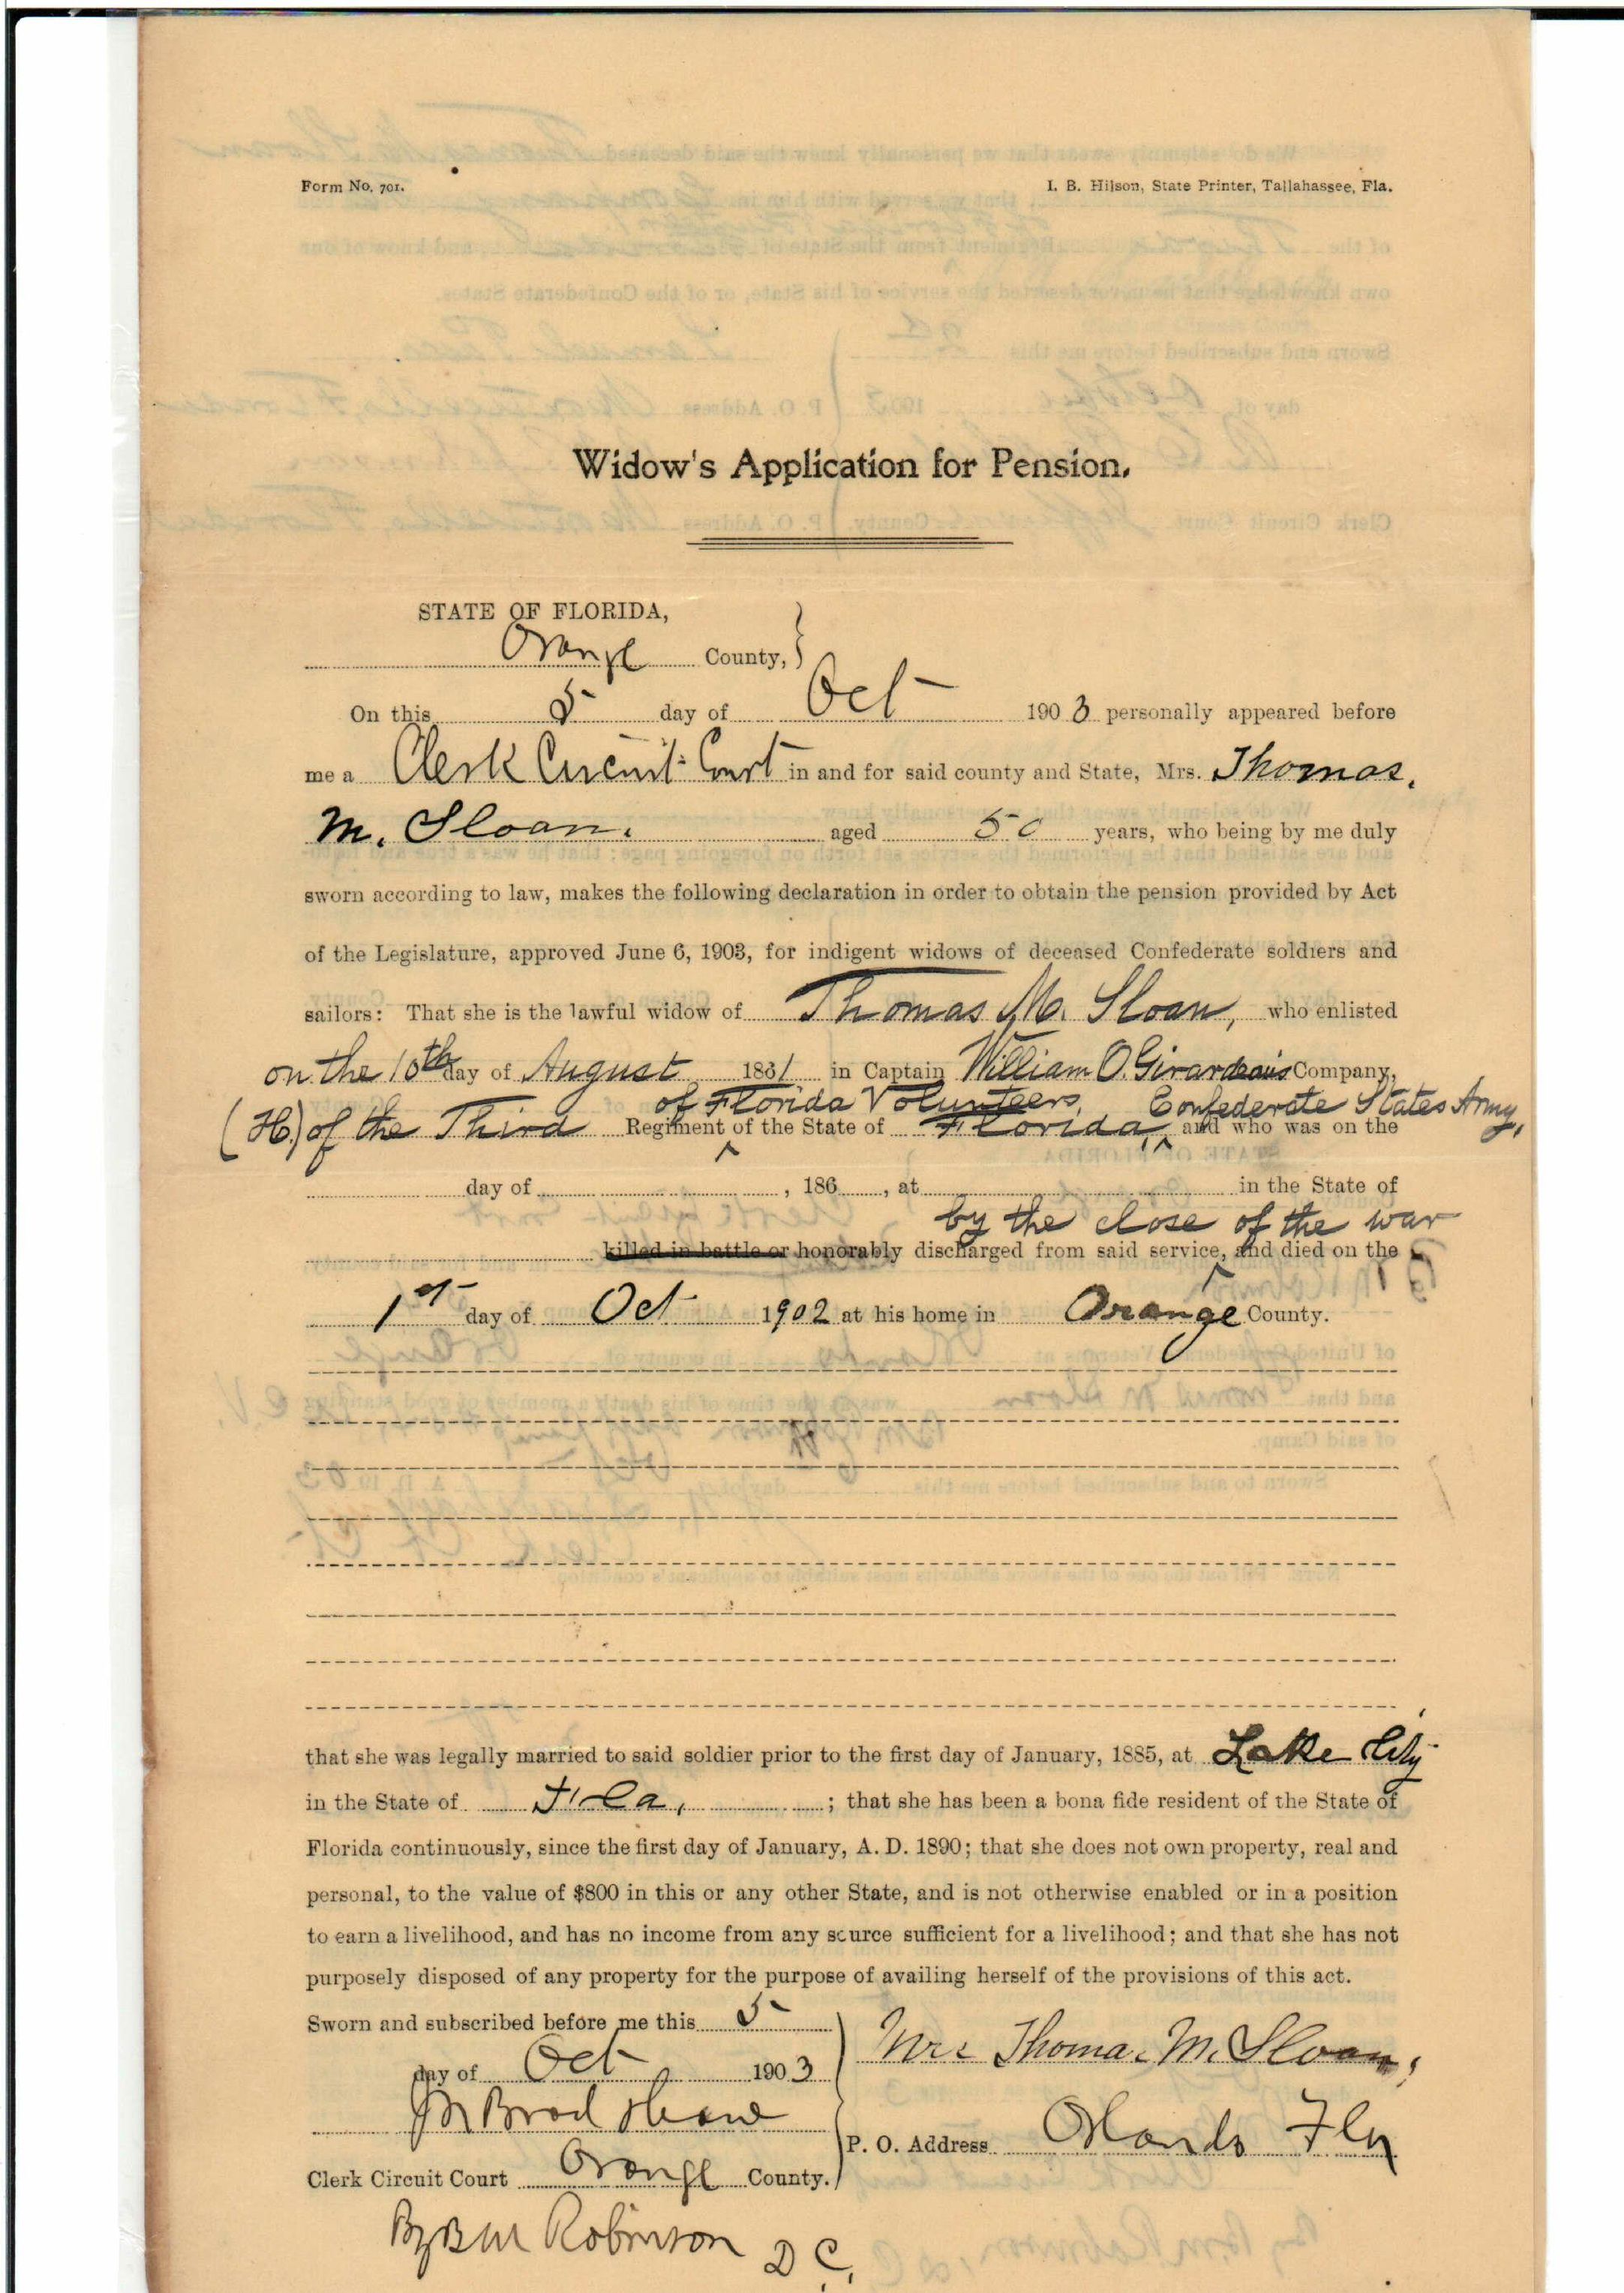 Form No. 701.
I. B. Hilson, State Printer, Tallahassee, Fla.
Widow's Application for Pension.
STATE OF FLORIDA,
Orange County,
On this 5 day of Oct 1903 personally appeared before
me a Clerk Circuit Court in and for said county and State, Mrs. Thomas.
M. Sloan. aged 50 years, who being by me duly
sworn according to law, makes the following declaration in order to obtain the pension provided by Act
of the Legislature, approved June 6, 1903, for indigent widows of deceased Confederate soldiers and
sailors: That she is the lawful widow of Thomas M. Sloan, who enlisted
on the 10th day of August 1861 in Captain William O. Girardeau's Company,
of Florida Volunteers, Confederate States Army,
(H.) of the Third Regiment of the State of Florida, and who was on the
day of , 186 , at in the State of
by the close of the war
killed in battle or honorably discharged from said service, and died on the
1st day of Oct 1902 at his home in Orange County.
that she was legally married to said soldier prior to the first day of January, 1885, at Lake City
in the State of Fla, ; that she has been a bona fide resident of the State of
Florida continuously, since the first day of January, A. D. 1890; that she does not own property, real and
personal, to the value of $800 in this or any other State, and is not otherwise enabled or in a position
to earn a livelihood, and has no income from any source sufficient for a livelihood; and that she has not
purposely disposed of any property for the purpose of availing herself of the provisions of this act.
Sworn and subscribed before me this 5
Mrs Thomas M. Sloan,
day of Oct 1903
P. O. Address Orlando Fla
Clerk Circuit Court Orange County.
By B M Robinson D C.